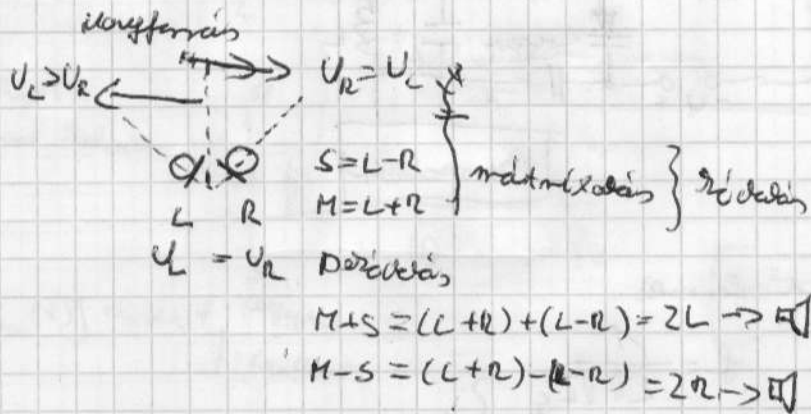 U_L > U_R
U_R = U_L
S = L-R
M = L+R
mátrixolás } kódolás
L R
U_L = U_R Dekódolás
M+S = (L+R)+(L-R) = 2L →
M-S = (L+R)-(L-R) = 2R →